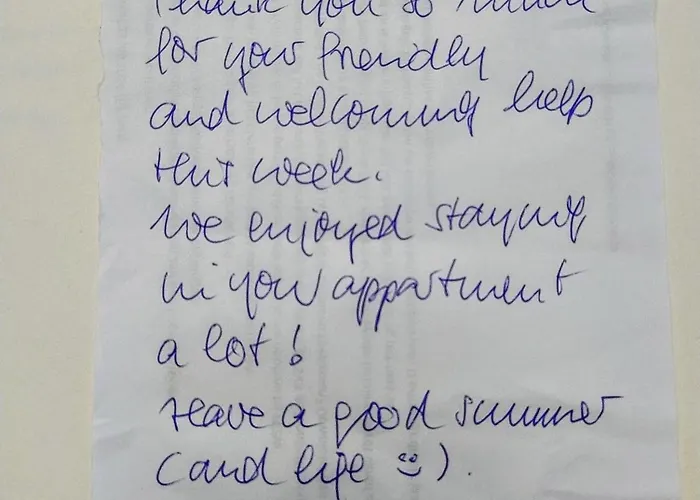 Thank you so much
for your friendly
and welcoming help
this week.
We enjoyed staying
in your appartment
a lot!
Have a good summer
(and life ☺).